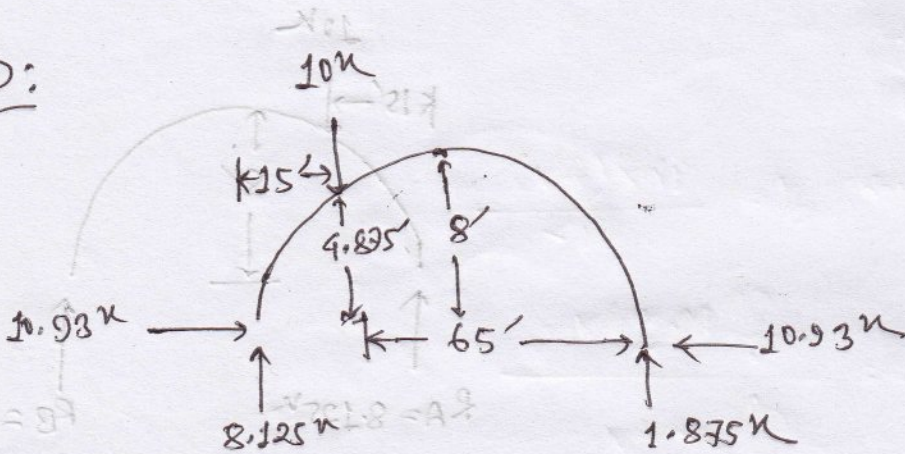 D:
10k
15′
4.875′ 8′
10.93k 65′ 10.93k
8.125k 1.875k